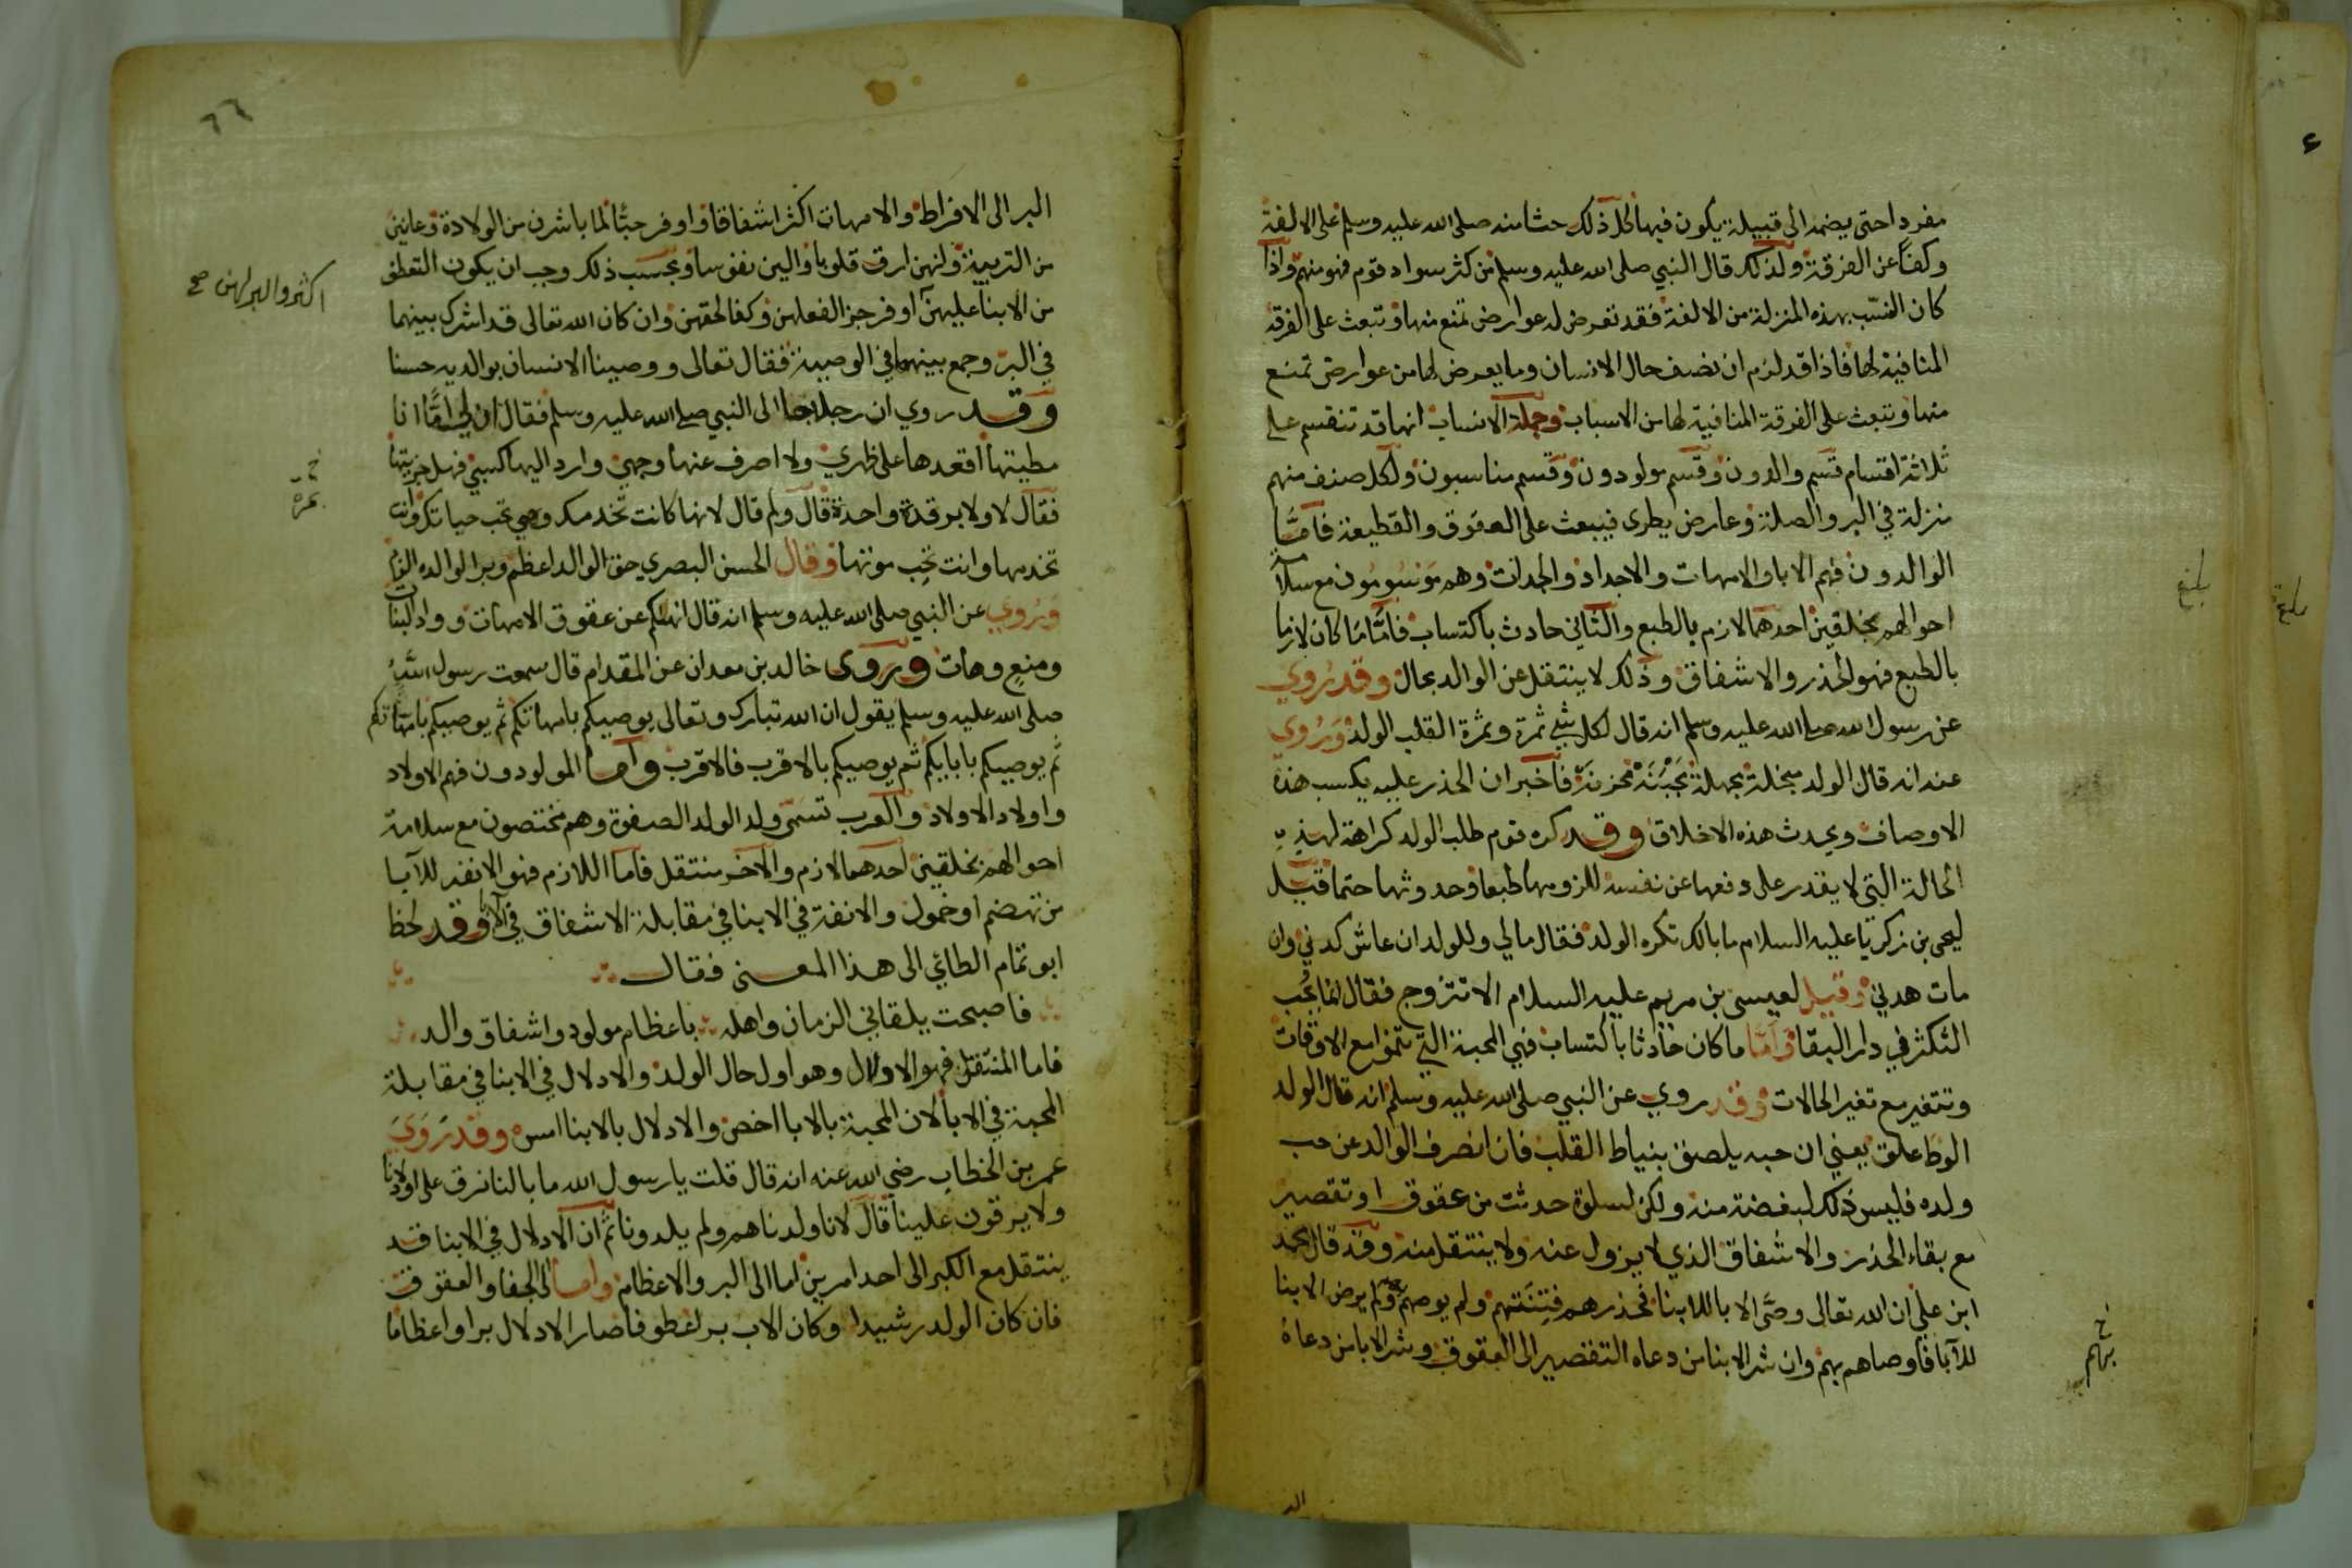 مفردا حتى يضمه الى قبيلة يكون فيها كل ذلك حثا منه صلى الله عليه وسلم على الالفة
وكفا عن الفرقة ولذلك قال النبي صلى الله عليه وسلم من كثر سواد قوم فهو منهم واذا
كان النسب بهذه المنزلة من الالفة فقد تعرض له عوارض تمنع منها وتبعث على الفرقة
المنافية لها فاذا قد لزم ان نصف حال الانسان وما يعرض لها من عوارض تمنع
منها وتبعث على الفرقة المنافية لها من الاسباب وجملة الانساب انها قد تنقسم على
ثلاثة اقسام قسم والدون وقسم مولودون وقسم مناسبون ولكل صنف منهم
منزلة في البر والصلة وعارض يطرى فيبعث على العقوق والقطيعة فاما
الوالدون فهم الابا والامهات والاجداد والجدات وهم موسومون مع سلامة
احوالهم بخلقين احدهما لازم بالطبع والثاني حادث باكتساب فاما ما كان لازما
بالطبع فهو الحذر والاشفاق وذلك لا ينتقل عن الوالد بحال وقد روي
عن رسول الله صلى الله عليه وسلم انه قال لكل شي ثمرة وثمرة القلب الولد وروي
عنه انه قال الولد مبخلة مجهلة مجبنة محزنة فاخبر ان الحذر عليه يكسب هذه
الاوصاف ويحدث هذه الاخلاق وقد كره قوم طلب الولد كراهة لهذه
الحالة التي لا يقدر على دفعها عن نفسه للزومها طبعا وحدوثها حتما قيل
ليحيى بن زكريا عليه السلام ما بالك تكره الولد فقال مالي وللولد ان عاش كدني وان
مات هدني وقيل لعيسى بن مريم عليه السلام الا تتزوج فقال انما يحب
التكثر في دار البقا واما ما كان حادثا باكتساب فهي المحبة التي تنموا مع الاوقات
وتتغير مع تغير الحالات وقد روي عن النبي صلى الله عليه وسلم انه قال الولد
الوط علق يعني ان حبه يلصق بنياط القلب فان انصرف الوالد عن حب
ولده فليس ذلك لبغضة منه ولكن لسلوة حدثت من عقوق او تقصير
مع بقاء الحذر والاشفاق الذي لا يزول عنه ولا ينتقل منه وقد قال محمد
ابن علي ان الله تعالى رضي الابا للابنا فحذرهم فتنتهم ولم يوصهم ولم يرض الابنا
للآبا فاوصاهم بهم وان شر الابنا من دعاه التقصير الى العقوق وشر الابا من دعاه
بلغ
خ
بهم
البر الى الافراط والامهات اكثر اشفاقا واوفر حبا لما باشرن من الولادة وعانين
من التربية ولنهن ارق قلوبا والين نفوسا وبحسب ذلك وجب ان يكون التعطف
من الابنا عليهن اوفر جزا لفعلهن وكفا لحقهن وان كان الله تعالى قد اشرك بينهما
في البر وجمع بينهما في الوصية فقال تعالى ووصينا الانسان بوالديه حسنا
وقد روي ان رجلا جا الى النبي صلى الله عليه وسلم فقال ان لي اما انا
مطيتها اقعدها على ظهري ولا اصرف عنها وجهي وارد اليها كسبي فهل جزيتها
فقال لا ولا بزفرة واحدة قال ولم قال لانها كانت تخدمك وهي تحب حياتك وانت
تخدمها وانت تحب موتها وقال الحسن البصري حق الوالد اعظم وبر الوالدة الزم
وروي عن النبي صلى الله عليه وسلم انه قال انهاكم عن عقوق الامهات وواد البنات
ومنع وهات وروى خالد بن معدان عن المقدام قال سمعت رسول الله
صلى الله عليه وسلم يقول ان الله تبارك وتعالى يوصيكم بامهاتكم ثم يوصيكم بامهاتكم
ثم يوصيكم بابايكم ثم يوصيكم بالاقرب فالاقرب واما المولودون فهم الاولاد
واولاد الاولاد والعرب تسمى ولد الولد الصفوة وهم مختصون مع سلامة
احوالهم بخلقين احدهما لازم والاخر منتقل فاما اللازم فهو الانفة للآبا
من تهضم او خمول والانفة في الابنا في مقابلة الاشفاق في الابا وقد لحظ
ابو تمام الطائي الى هذا المعنى فقال
فاصبحت يلقاني الزمان واهله باعظام مولود واشفاق والد
فاما المنتقل فهو الادلال وهو اول حال الولد والادلال في الابنا في مقابلة
المحبة في الابا لان المحبة بالابا اخص والادلال بالابنا امس وقد روي
عمر بن الخطاب رضي الله عنه انه قال قلت يا رسول الله ما بالنا نرق على اولادنا
ولا يرقون علينا قال لانا ولدناهم ولم يلدونا ثم ان الادلال في الابنا قد
ينتقل مع الكبر الى احد امرين اما الى البر والاعظام واما الى الجفا والعقوق
فان كان الولد رشيدا وكان الاب برا عطوفا صار الادلال برا واعظاما
٦٦
اكثر والبر لهن صح
خ